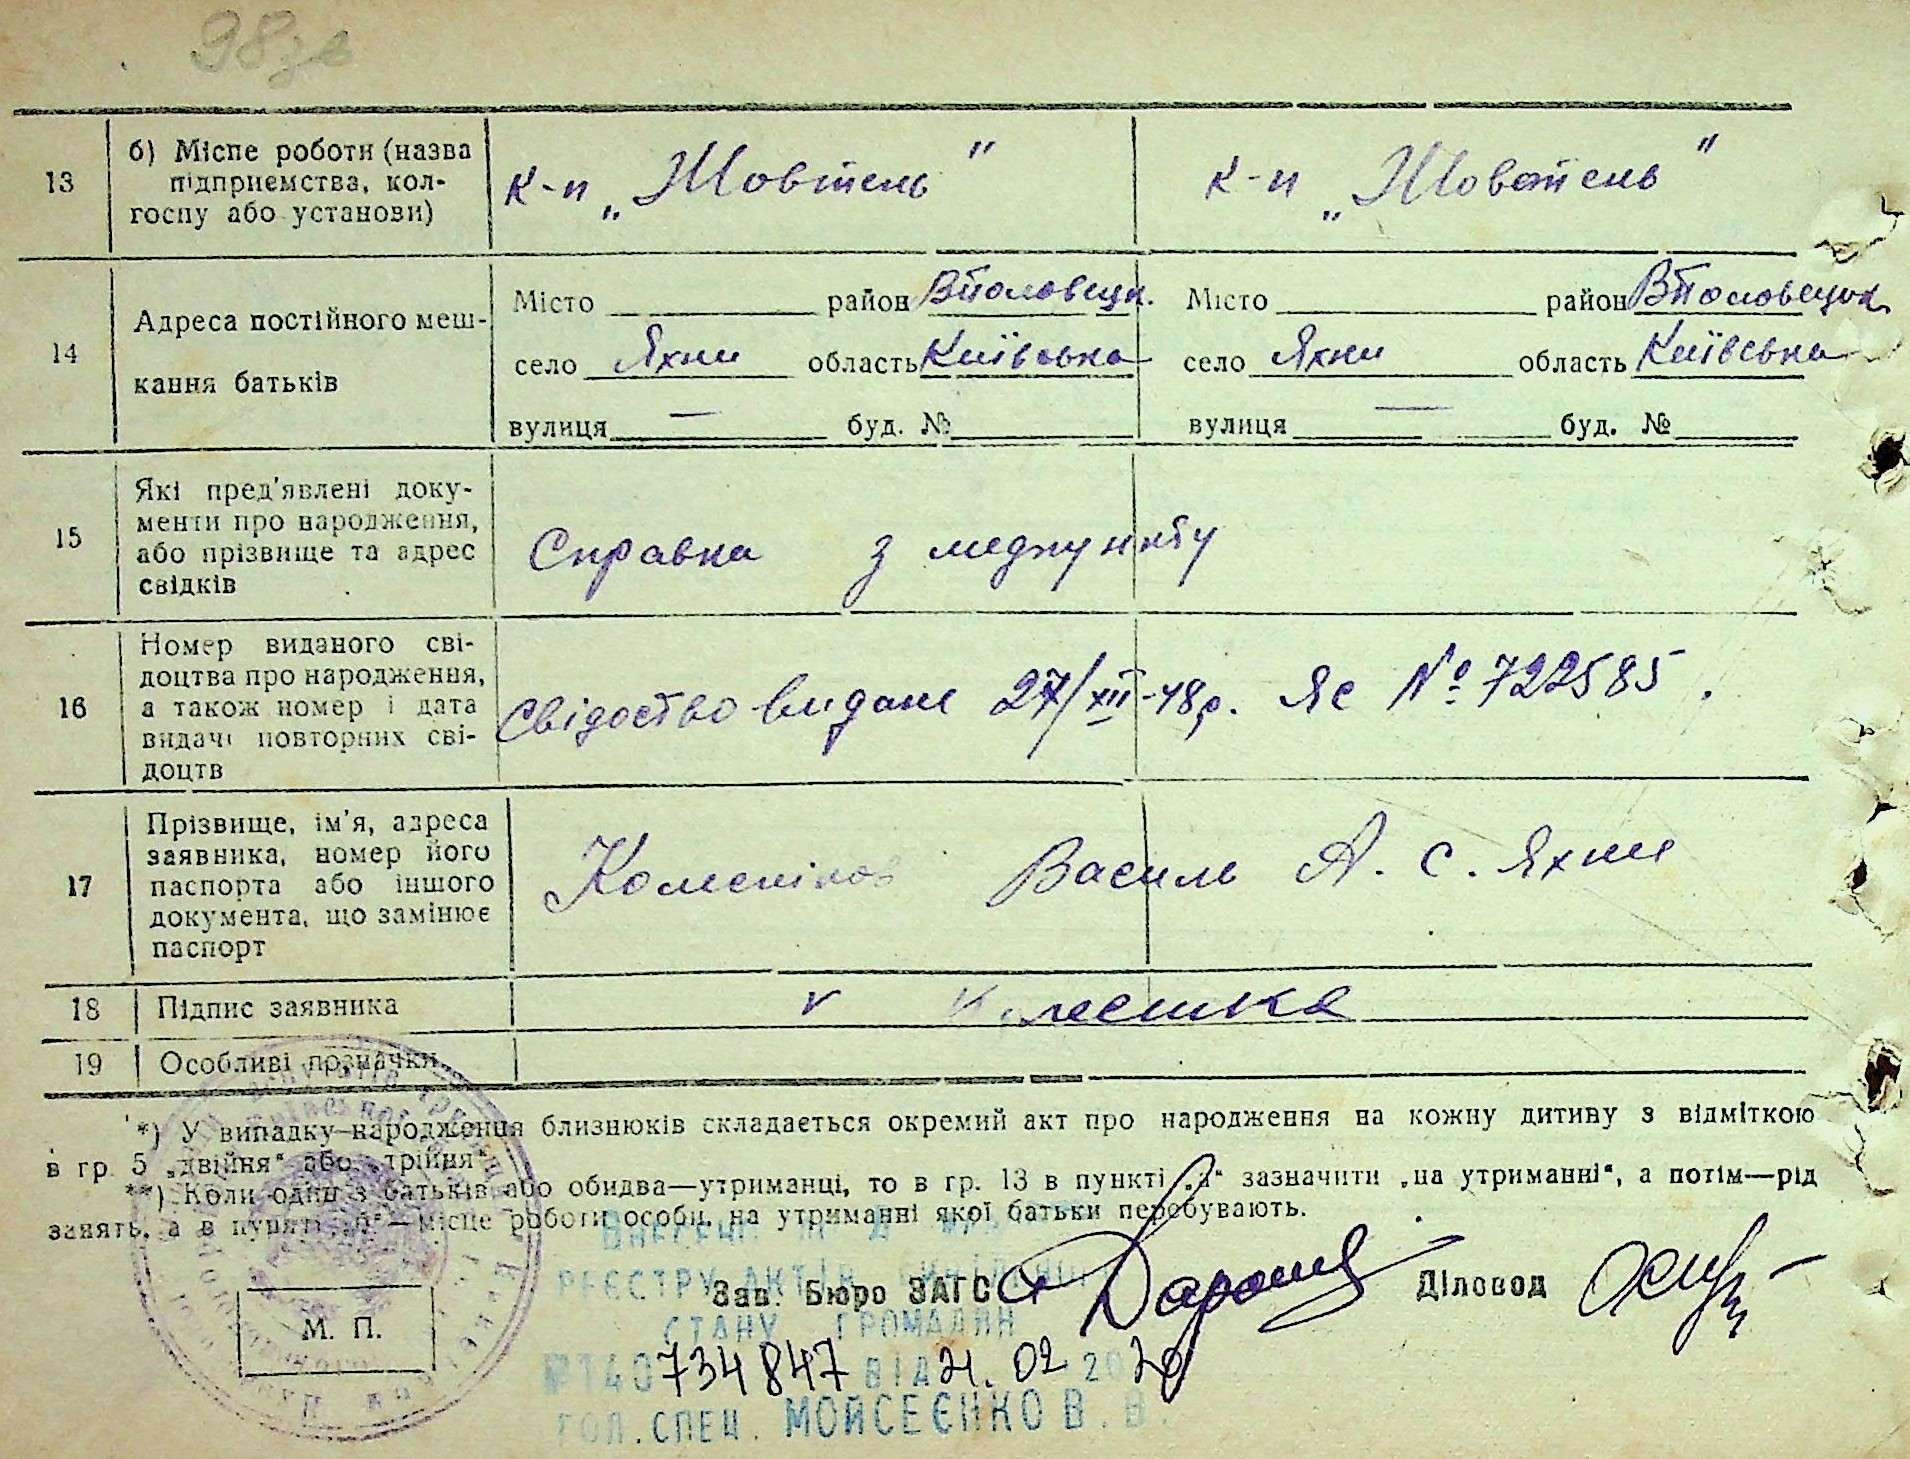 98зв
13 б) Місце роботи (назва підприємства, колгоспу або установи) к-п „Жовтень" к-п „Жовтень"
14 Адреса постійного мешкання батьків
Місто район ВПоловецьк. Місто район ВПоловецьк
село Яхни область Київська село Яхни область Київська
вулиця — буд. № вулиця — буд. №
15 Які пред'явлені документи про народження, або прізвище та адрес свідків
Справка з медпункту
16 Номер виданого свідоцтва про народження, а також номер і дата видачі повторних свідоцтв
Свідоство видане 27/XII-48р. Яс № 722585.
17 Прізвище, ім'я, адреса заявника, номер його паспорта або іншого документа, що замінює паспорт
Василь А. с. Яхни
18 Підпис заявника v
19 Особливі позначки
*) У випадку народження близнюків складається окремий акт про народження на кожну дитину з відміткою
в гр. 5 „двійня" або „трійня".
**) Коли один з батьків або обидва—утриманці, то в гр. 13 в пункті „а" зазначити „на утриманні", а потім—рід
занять, а в пункті „б"—місце роботи особи, на утриманні якої батьки перебувають.
РЕЄСТРУ АКТІВ
Зав. Бюро ЗАГС Діловод
СТАНУ ГРОМАДЯН
М. П.
№140734847 ВІД 21.02 2020
ГОЛ. СПЕЦ. МОЙСЕЄНКО В. В.